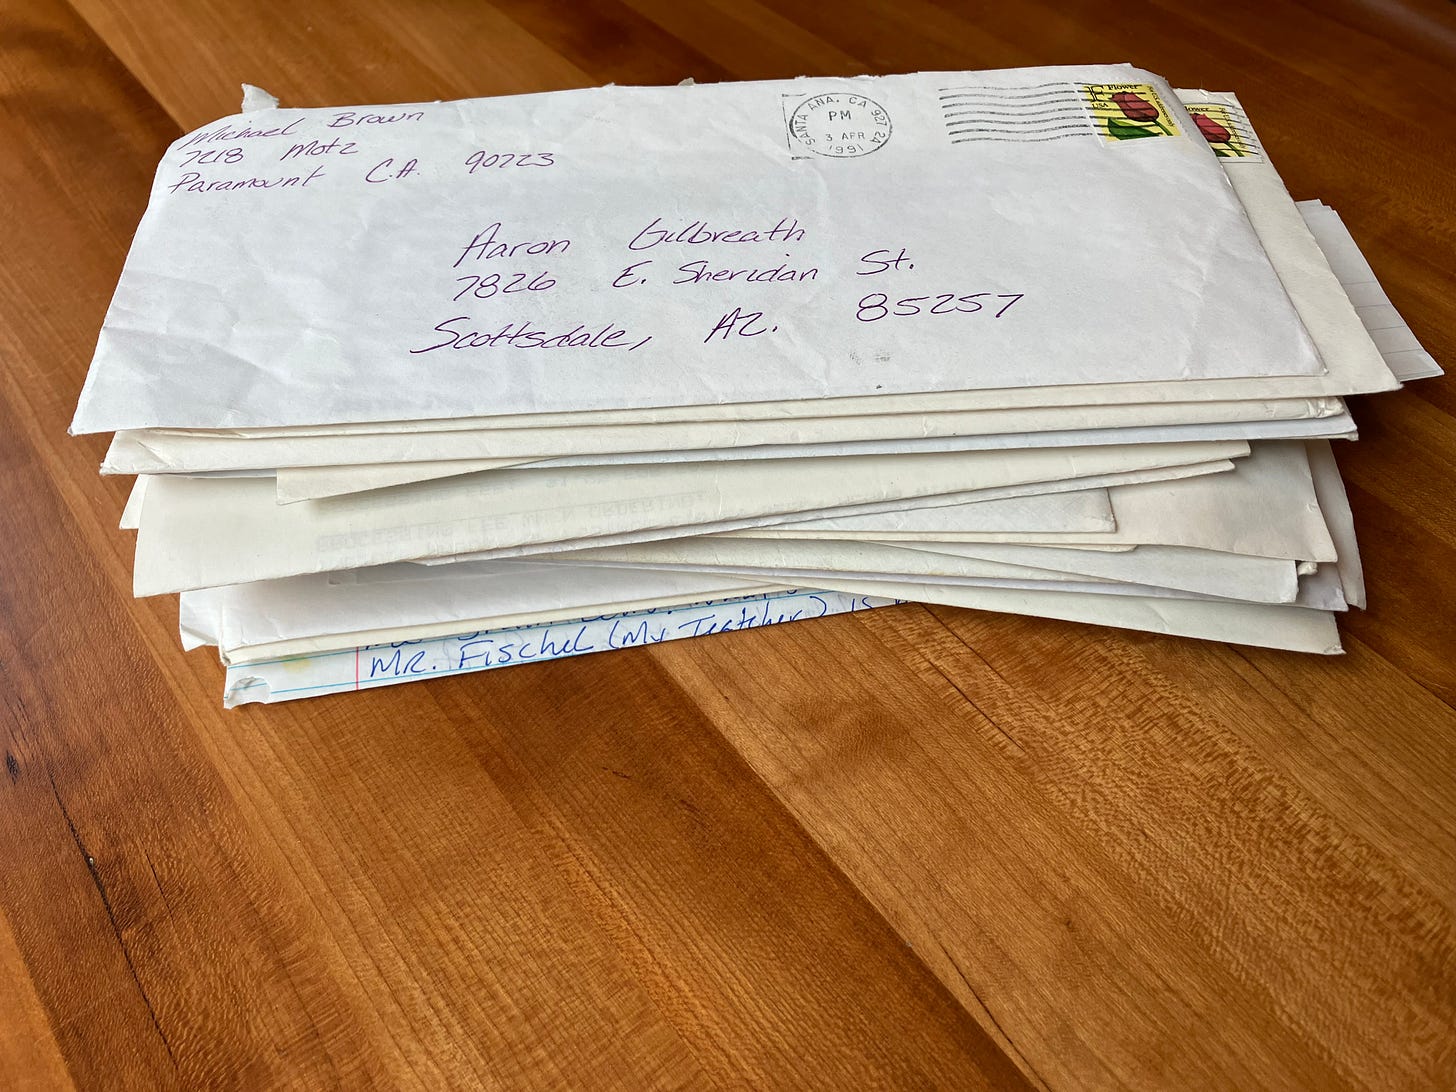 Michael Brown
7218 Motz
Paramount C.A. 90723
SANTA ANA, CA 927
PM
3 APR
1991
F Flower
USA
Flower
Aaron Gilbreath
7826 E. Sheridan St.
Scottsdale, AZ. 85257
MR. Fischel (My Teatcher) is